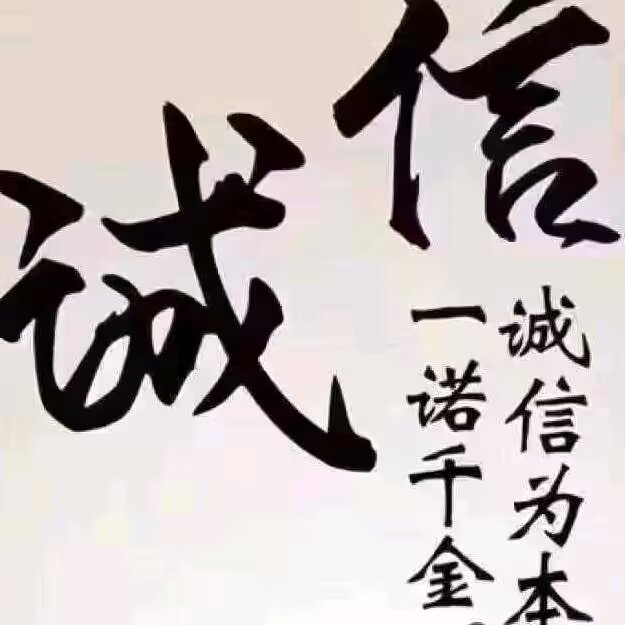 诚信
诚信为本
一诺千金。